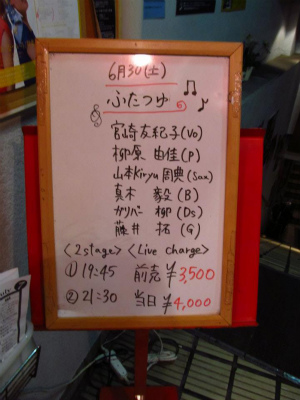 6月30(土)
ふたつゆ
宮崎友紀子(Vo)
柳原 由佳(P)
山本Kinyu周典(Sax)
真木 毅(B)
ガリバー 柳(Ds)
藤井 拓(G)
<2stage> <Live charge>
① 19:45 前売 ¥3,500
② 21:30 当日 ¥4,000